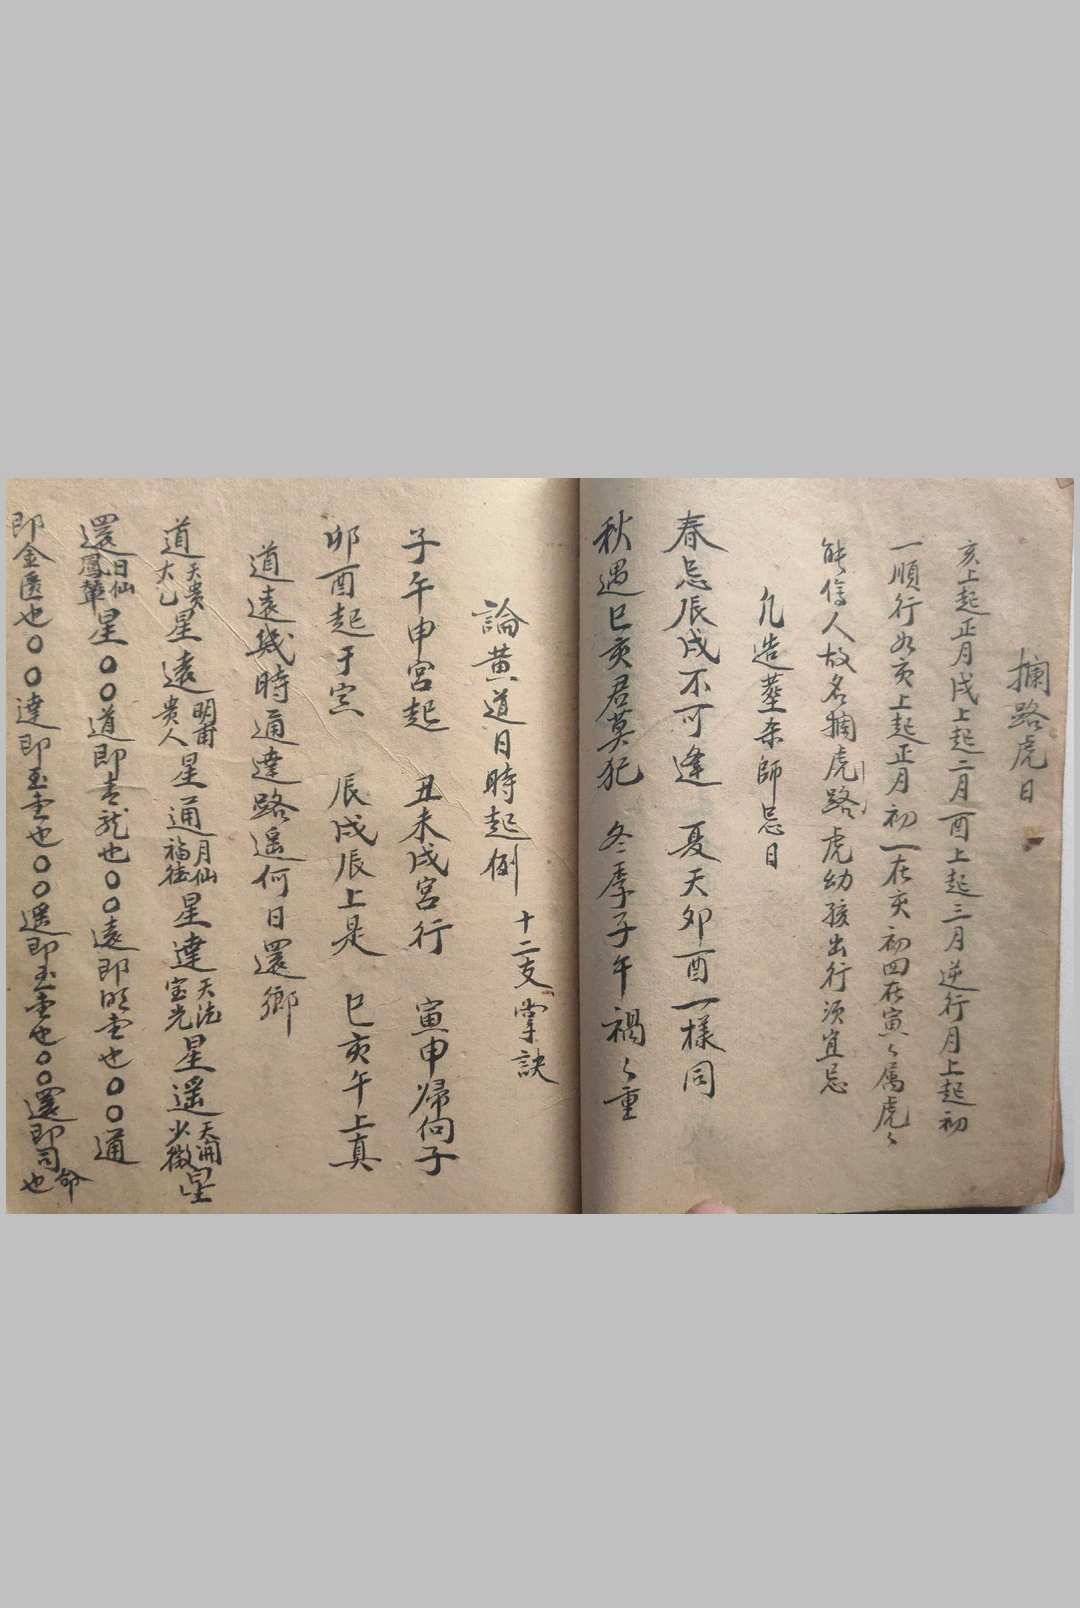 攔路虎日
亥上起正月戌上起二月酉上起三月逆行月上起初
一順行如亥上起正月初一在亥初四在寅々属虎々
能傷人故名攔虎路虎幼孩出行须宜忌
凢造葬杀師忌日
春忌辰戌不可逢 夏天卯酉一樣同
秋遇巳亥君莫犯 冬季子午禍々重
論黄道日時起例 十二支掌訣
子午申宮起 丑未戌宮行 寅申歸何子
卯酉起于寅 辰戌辰上是 巳亥午上真
道遠幾時通達路遥何日還鄉
道天贵太乙星遠明甫贵人星通月仙福德星達天德宝光星遥天開少微星
還日仙鳳輦星〇〇道即青龙也〇〇遠即明堂也〇〇通
即金匱也〇〇達即玉堂也〇〇遥即玉堂也〇〇還即司命也